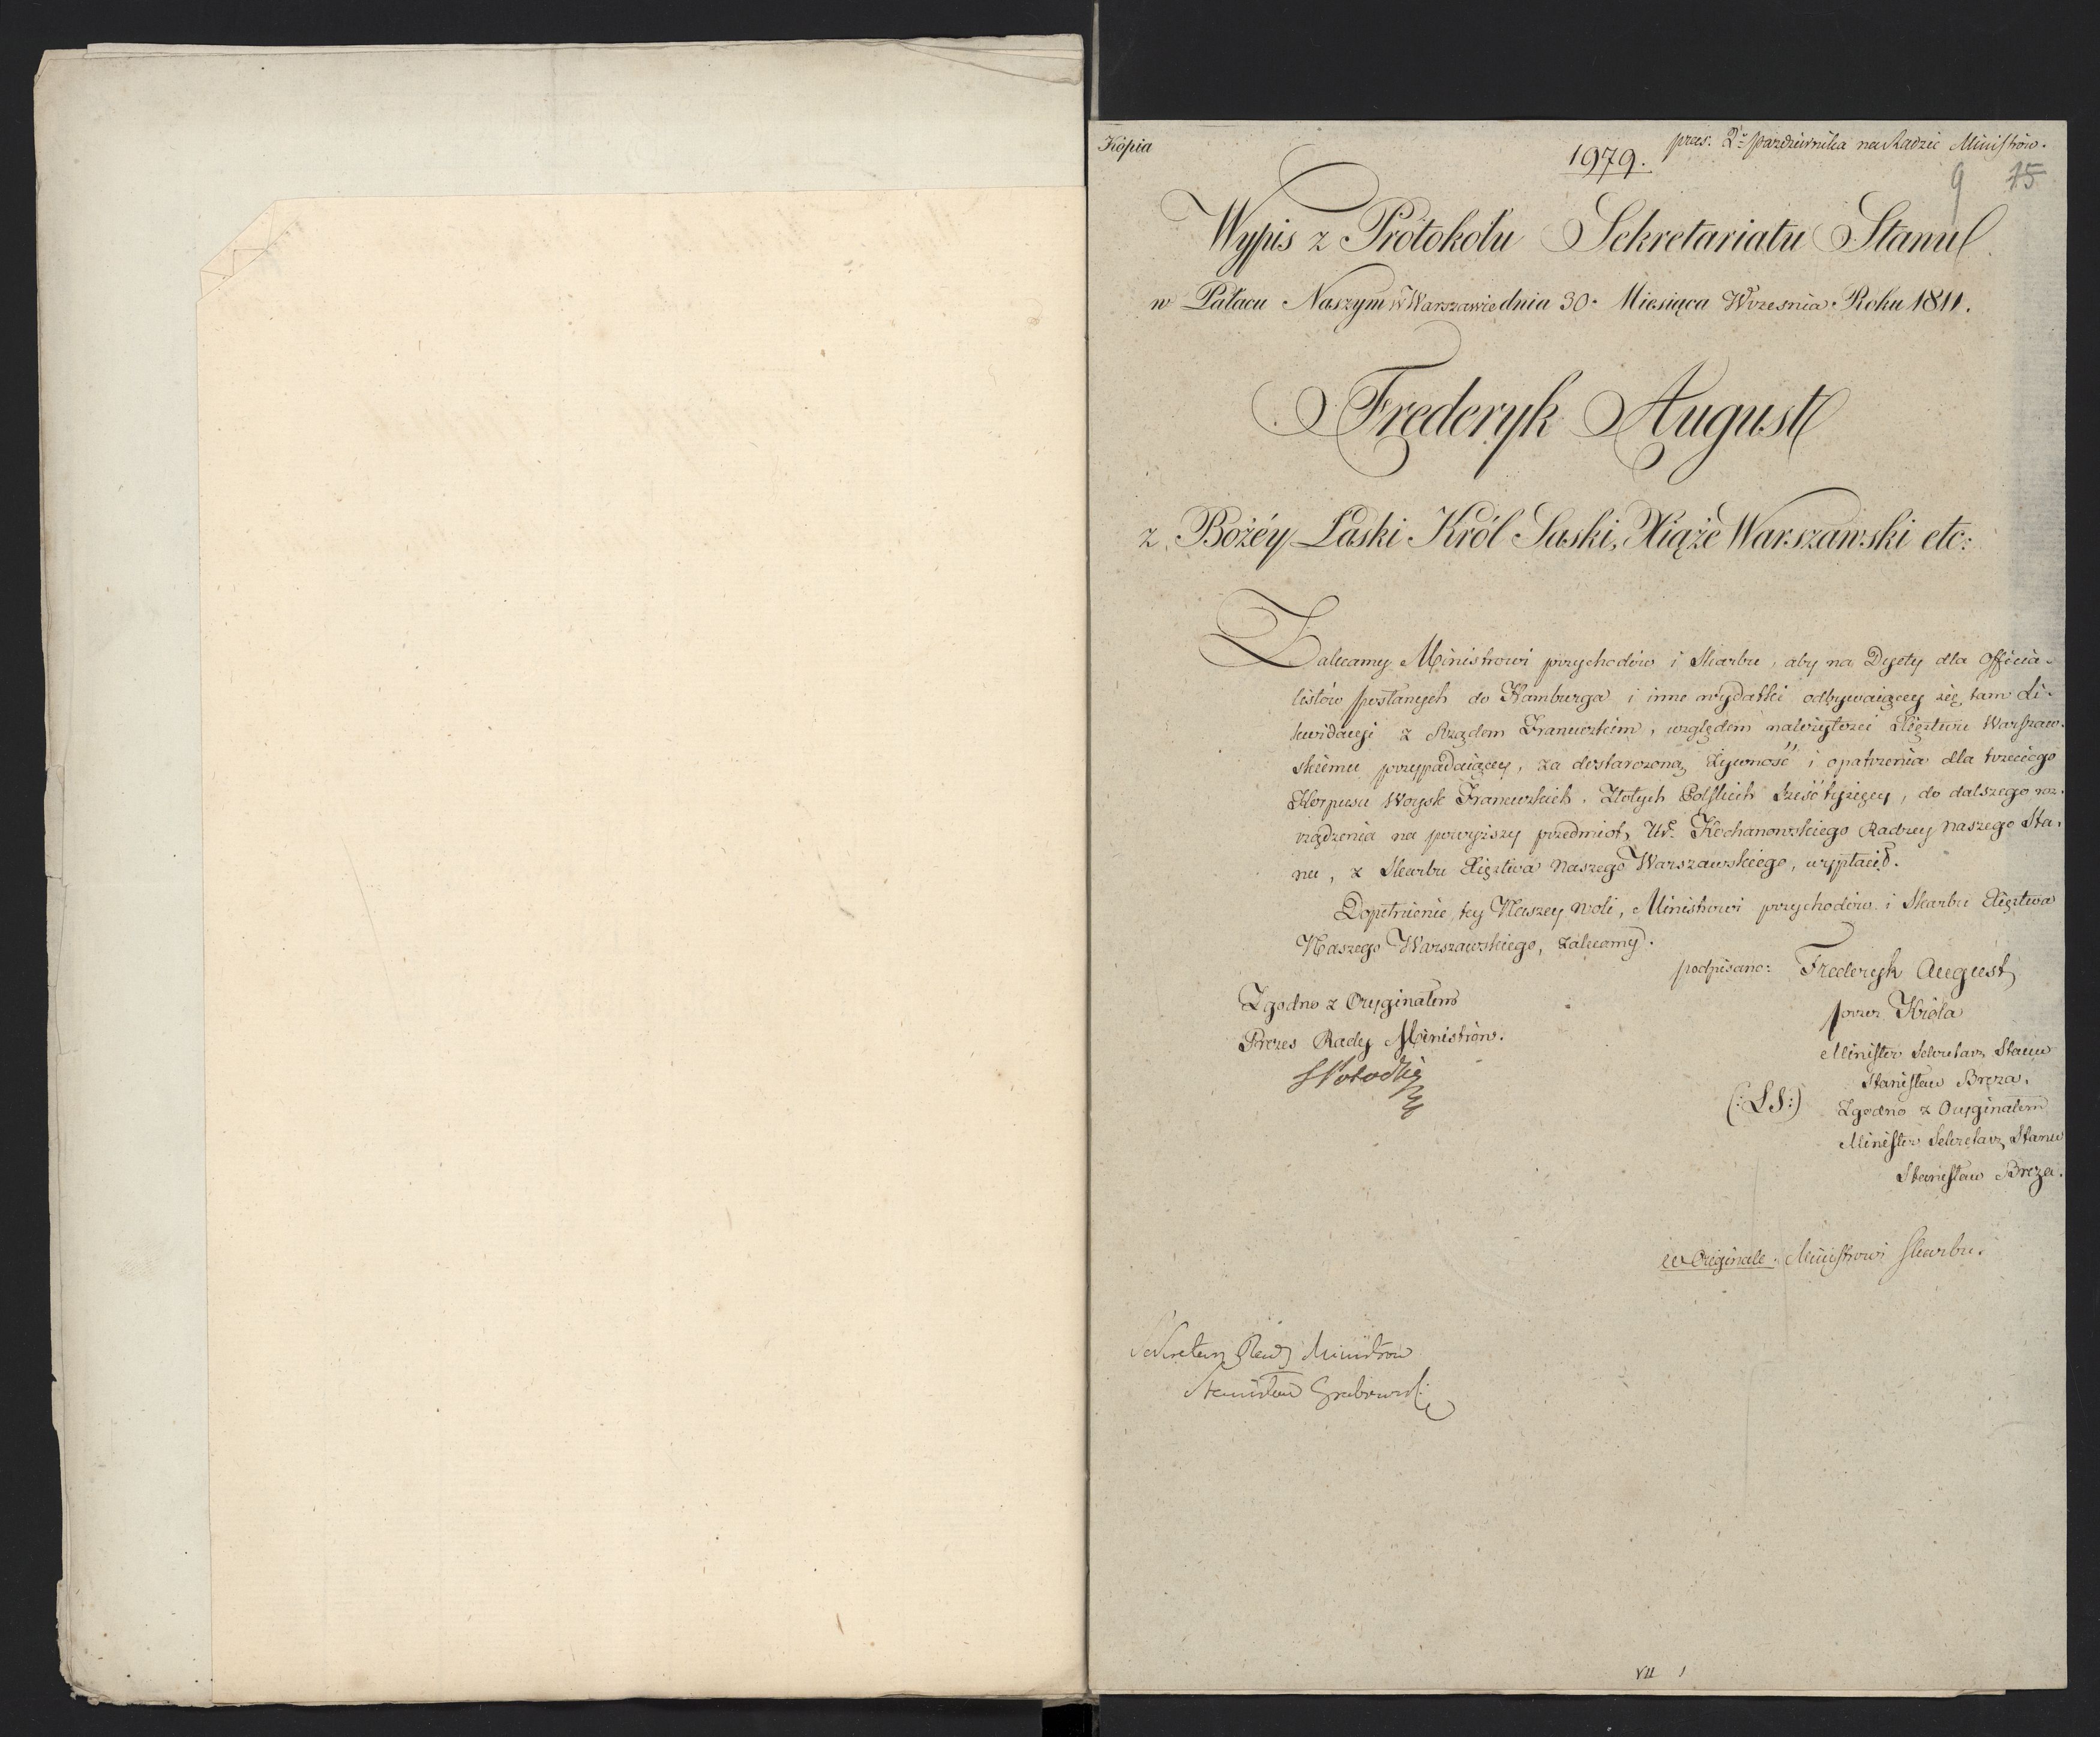 Kopia
1979.
præs. 2° Października na Radzie Ministrów.
9 15
Wypis z Protokołu Sekretariatu Stanu
w Pałacu Naszym w Warszawie dnia 30. Miesiąca Wrzesnia Roku 1811.
Frederyk August
z Bożéy Łaski Król Saski, Xiąże Warszawski etc:
Zalecamy Ministrowi przychodów i Skarbu, aby na Dyety dla Officia-
listów posłanych do Hamburga i inne wydatki odbywaiącey się tam Li-
kwidacyi z Rządem Francuzkim, względem należytości Xięztwu Warszaw-
skiemu przypadaiącey, za dostarczoną żywność i opatrzenia dla trzeciego
Korpusu Woysk Francuzkich. Złotych Polskich sześć tysięcy, do dalszego roz-
rządzenia na powyższy przedmiot, Ur. Kochanowskiego Radzcy Naszego Sta-
nu, z Skarbu Xięztwa Naszego Warszawskiego, wypłacił.
Dopełnienie tey Naszey woli, Ministrowi przychodów i Skarbu Xięztwa
Naszego Warszawskiego, zalecamy.
podpisano: Frederyk August
przez Króla
Minister Sekretarz Stanu
Stanisław Breza.
(:LS:) Zgodno z Oryginałem
Minister Sekretarz Stanu
Stanisław Breza.
Zgodno z Oryginałem
Prezes Rady Ministrów.
SPotocki
w Originale. Ministrowi Skarbu.
Sekretarz Rady Ministrów
Stanisław Grabowski
VII 1